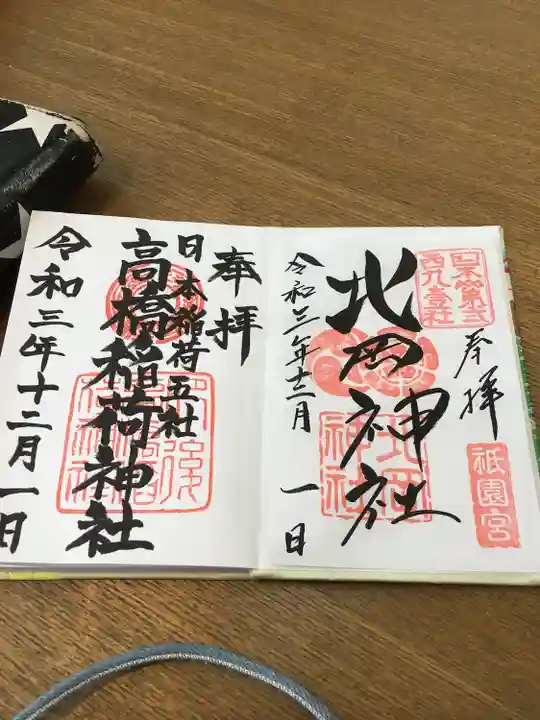 奉拝
祇園宮
北岡神社
北岡
神社
令和三年十二月 一日
奉拝
日本稲荷五社
高橋稲荷神社
令和三年十二月一日